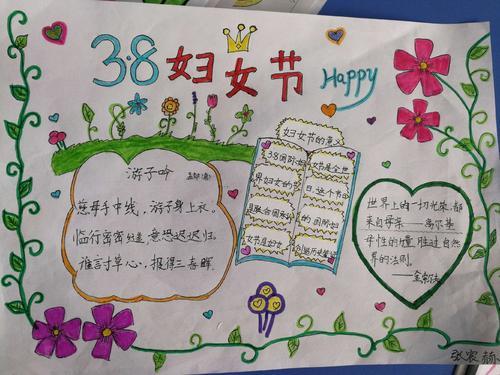 3.8妇女节
Happy
游子吟
慈母手中线,游子身上衣。
临行密密缝,意恐迟迟归
谁言寸草心,报得三春晖
妇女节的意义
38国际妇
女节是全世
界妇女的节
日。这个节日
是联合国
的国际妇
女节是妇女
创造历史
世界上的一切光荣,都
来自母亲——高尔基
母性的
胜过自然
界的法则。